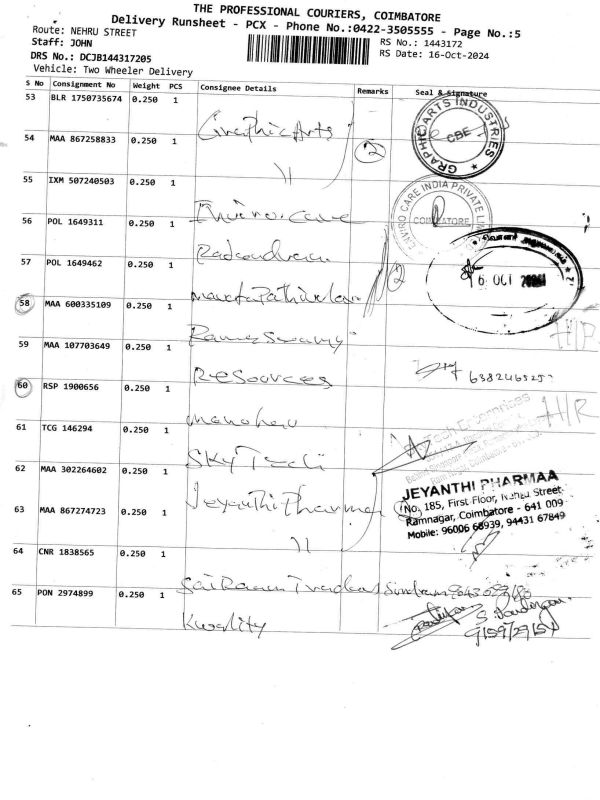 THE PROFESSIONAL COURIERS, COIMBATORE
Delivery Runsheet - PCX - Phone No.:0422-3505555 - Page No.:5
Route: NEHRU STREET
RS No.: 1443172
Staff: JOHN
RS Date: 16-Oct-2024
DRS No.: DCJB144317205
Vehicle: Two Wheeler Delivery
S No Consignment No Weight PCS Consignee Details Remarks Seal & Signature
53 BLR 1750735674 0.250 1 Graphic Arts
GRAPHIC ARTS INDUSTRIES
CBE
54 MAA 867258833 0.250 1 11 2
55 IXM 507240503 0.250 1 Enviro care
ENVIRO CARE INDIA PRIVATE
COIMBATORE
56 POL 1649311 0.250 1
57 POL 1649462 0.250 1 2
6 OCT 2024
58 MAA 600335109 0.250 1 Ramaswamy
59 MAA 107703649 0.250 1 Resources
60 RSP 1900656 0.250 1 Manohar H/R
61 TCG 146294 0.250 1 Sky Tech
Tech Enterprises
62 MAA 302264602 0.250 1 Jeyanthi Pharma
JEYANTHI PHARMAA
No. 185, First Floor, Nehru Street
Ramnagar, Coimbatore - 641 009
Mobile: 96006 68939, 94431 67849
63 MAA 867274723 0.250 1 11
64 CNR 1838565 0.250 1 Sai Traders
65 PON 2974899 0.250 1 Kwality